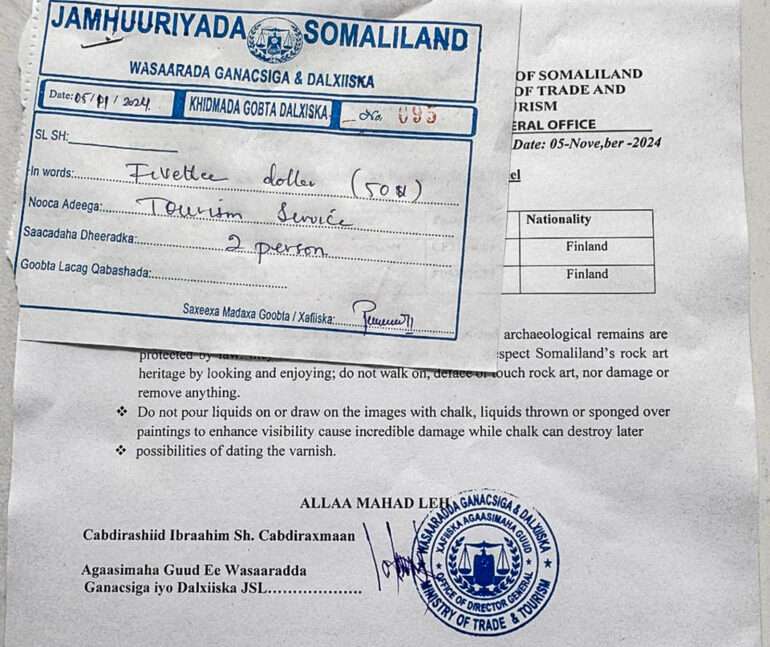 JAMHUURIYADA SOMALILAND
WASAARADA GANACSIGA & DALXIISKA
Date: 05/01/2024
KHIDMADA GOBTA DALXISKA
No. 095
SL SH:
In words: Fivetlee doller (50$)
Nooca Adeega: Tourism Service
Saacadaha Dheeradka: 2 person
Goobta Lacag Qabashada:
Saxeexa Madaxa Goobta / Xafiiska:
OF SOMALILAND
OF TRADE AND
RISM
ERAL OFFICE
Date: 05-Nove,ber -2024
el
Nationality
Finland
Finland
archaeological remains are
protected by law.
spect Somaliland's rock art
heritage by looking and enjoying; do not walk on, deface or touch rock art, nor damage or
remove anything.
❖ Do not pour liquids on or draw on the images with chalk, liquids thrown or sponged over
paintings to enhance visibility cause incredible damage while chalk can destroy later
❖ possibilities of dating the varnish.
ALLAA MAHAD LEH
Cabdirashiid Ibraahim Sh. Cabdiraxmaan
Agaasimaha Guud Ee Wasaaradda
Ganacsiga iyo Dalxiiska JSL....................
WASAARADDA GANACSIGA & DALXIISKA
XAFIISKA AGAASIMAHA GUUD
OFFICE OF DIRECTOR GENERAL
MINISTRY OF TRADE & TOURISM